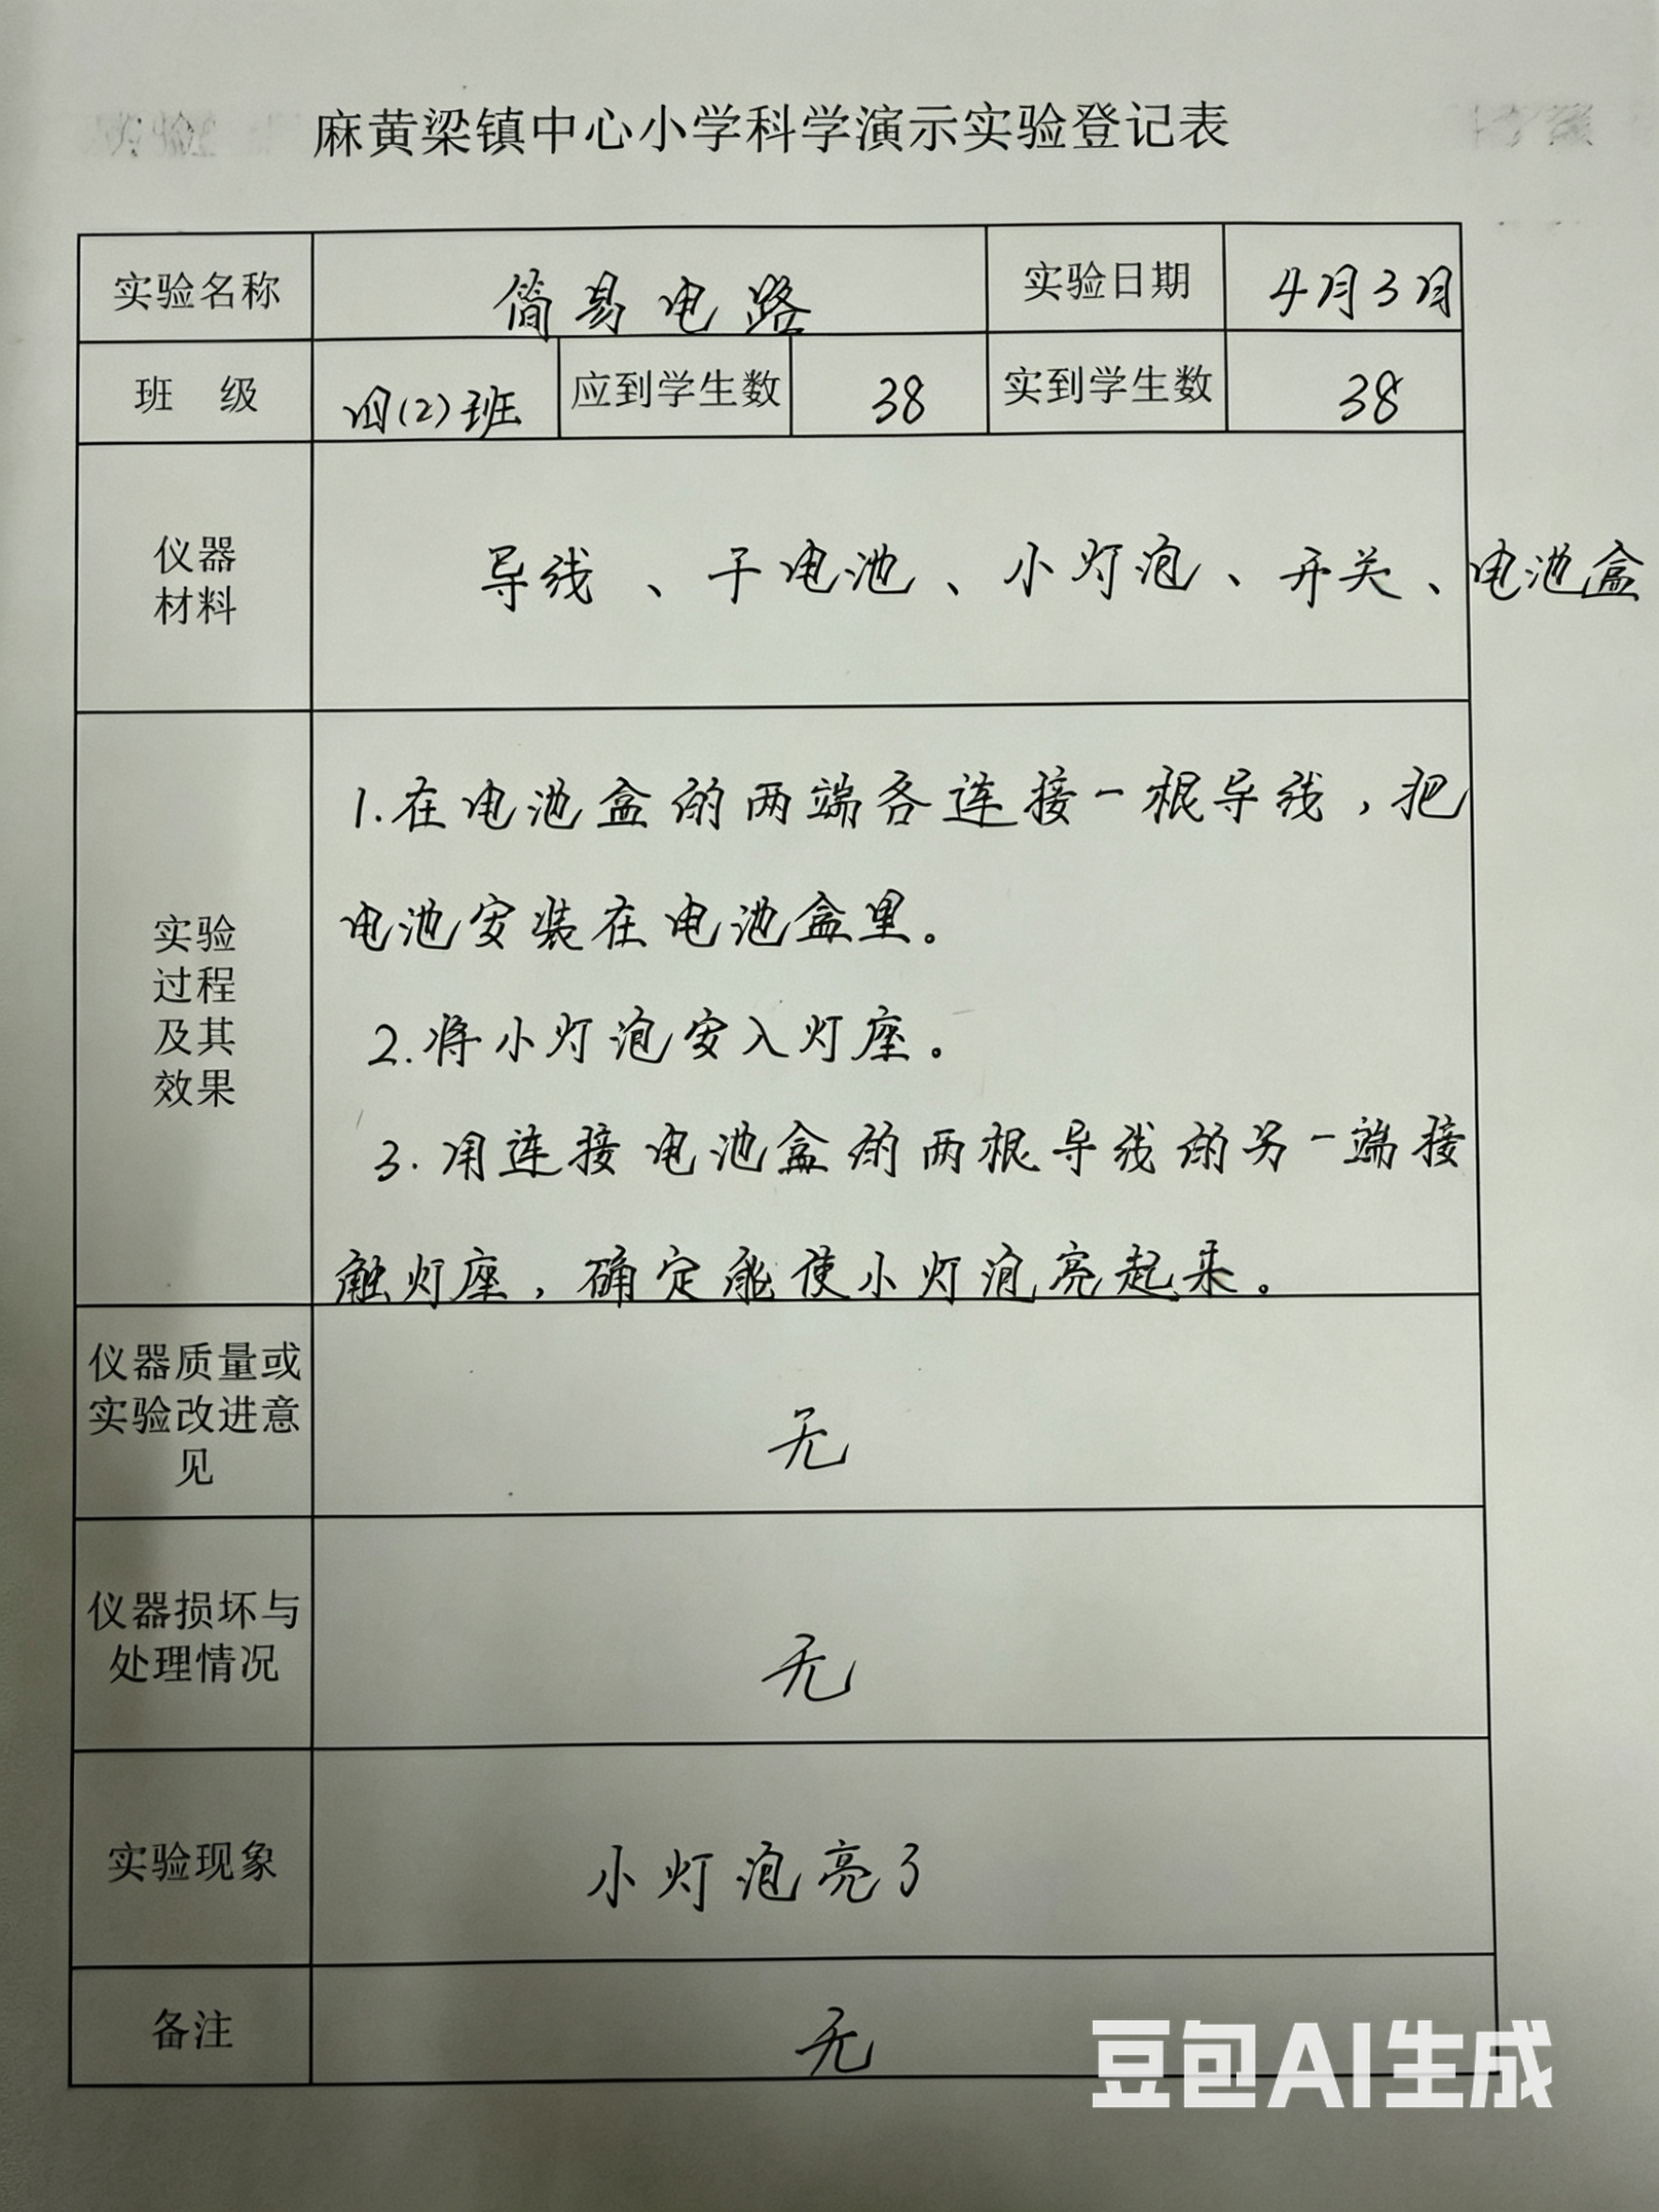 麻黄梁镇中心小学科学演示实验登记表
实验名称 简易电路 实验日期 4月3月
班 级 四(2)班 应到学生数 38 实到学生数 38
仪器
材料
导线、干电池、小灯泡、开关、电池盒
实验
过程
及其
效果
1.在电池盒的两端各连接一根导线,把
电池安装在电池盒里。
2.将小灯泡安入灯座。
3.用连接电池盒的两根导线的另一端接
触灯座,确定能使小灯泡亮起来。
仪器质量或
实验改进意
见
无
仪器损坏与
处理情况
无
实验现象 小灯泡亮了
备注 无
豆包AI生成